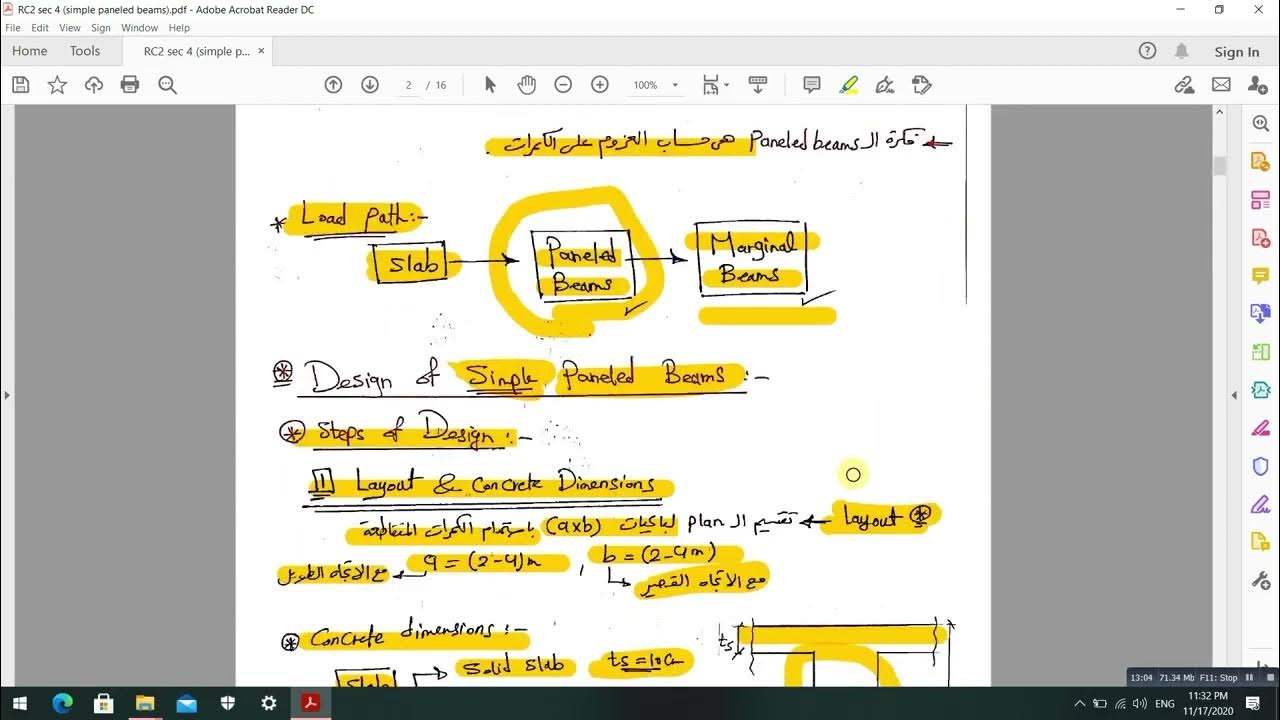 RC2 sec 4 (simple paneled beams).pdf - Adobe Acrobat Reader DC
File Edit View Sign Window Help
Home Tools RC2 sec 4 (simple p... × Sign In
2 / 16 100%
فكرة الـ Paneled beams هى حساب العزوم على الكمرات
* Load Path:-
Slab
Paneled Beams
Marginal Beams
* Design of Simple Paneled Beams :-
* Steps of Design :-
1 Layout & Concrete Dimensions
* Layout ← تقسيم الـ plan لباكيات (axb) باستخدام الكمرات المتقاطعة
a = (2-4)m , b = (2-4m)
مع الاتجاه الطويل
مع الاتجاه القصير
* Concrete dimensions :-
ts
Slab
Solid slab ts=10cm
13:04 71.34 Mb F11: Stop
ENG 11:32 PM
11/17/2020